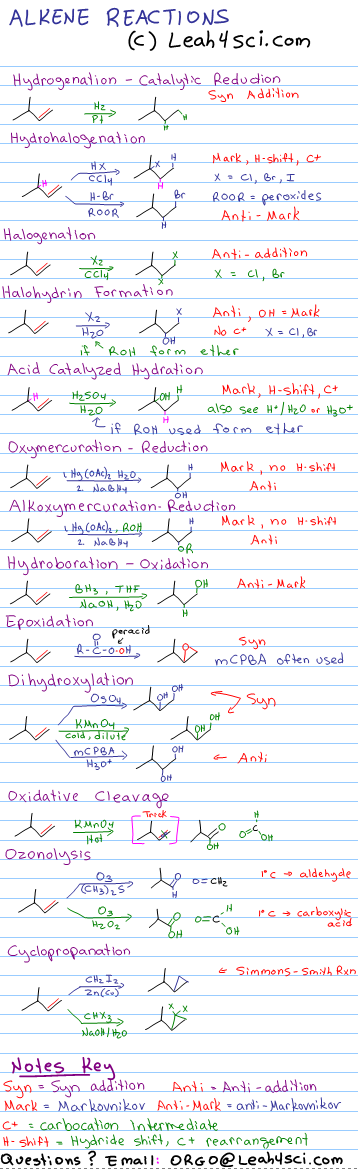 ALKENE REACTIONS
(c) Leah4Sci.com
Hydrogenation - Catalytic Reduction
H2
Pt
H
H
Syn Addition
Hydrohalogenation
H
HX
CCl4
X
H
H
Mark, H-shift, C+
X = Cl, Br, I
H-Br
ROOR
Br
H
ROOR = peroxides
Anti - Mark
Halogenation
X2
CCl4
X
X
Anti-addition
X = Cl, Br
Halohydrin Formation
X2
H2O
X
OH
Anti, OH = Mark
No C+ X = Cl, Br
if ROH form ether
Acid Catalyzed Hydration
H
H2SO4
H2O
H
OH
H
Mark, H-shift, C+
also see H+/H2O or H3O+
if ROH used form ether
Oxymercuration - Reduction
1, Hg(OAc)2 H2O
2 NaBH4
H
OH
Mark, no H-shift
Anti
Alkoxymercuration- Reduction
1, Hg(OAc)2, ROH
2 NaBH4
H
OR
Mark, no H-shift
Anti
Hydroboration - Oxidation
BH3, THF
NaOH, H2O
OH
H
Anti-Mark
Epoxidation
peracid
O
R-C-O-OH
O
Syn
mCPBA often used
Dihydroxylation
OsO4
OH
OH
KMnO4
cold, dilute
OH
OH
Syn
mCPBA
H3O+
OH
OH
Anti
Oxidative Cleavage
KMnO4
Hot
Trick
O
OH
H
O=C
OH
Ozonolysis
O3
(CH3)2S
O
H
O=CH2
1°C → aldehyde
O3
H2O2
O
OH
O=C
H
OH
1°C → carboxylic
acid
Cyclopropanation
CH2I2
Zn(Cu)
← Simmons-Smith Rxn
CHX3
NaOH/H2O
X X
Notes Key
Syn = Syn addition Anti = Anti-addition
Mark = Markovnikov Anti-Mark = anti-Markovnikov
C+ = carbocation Intermediate
H-shift = Hydride shift, C+ rearrangement
Questions? Email: ORGO@Leah4sci.com